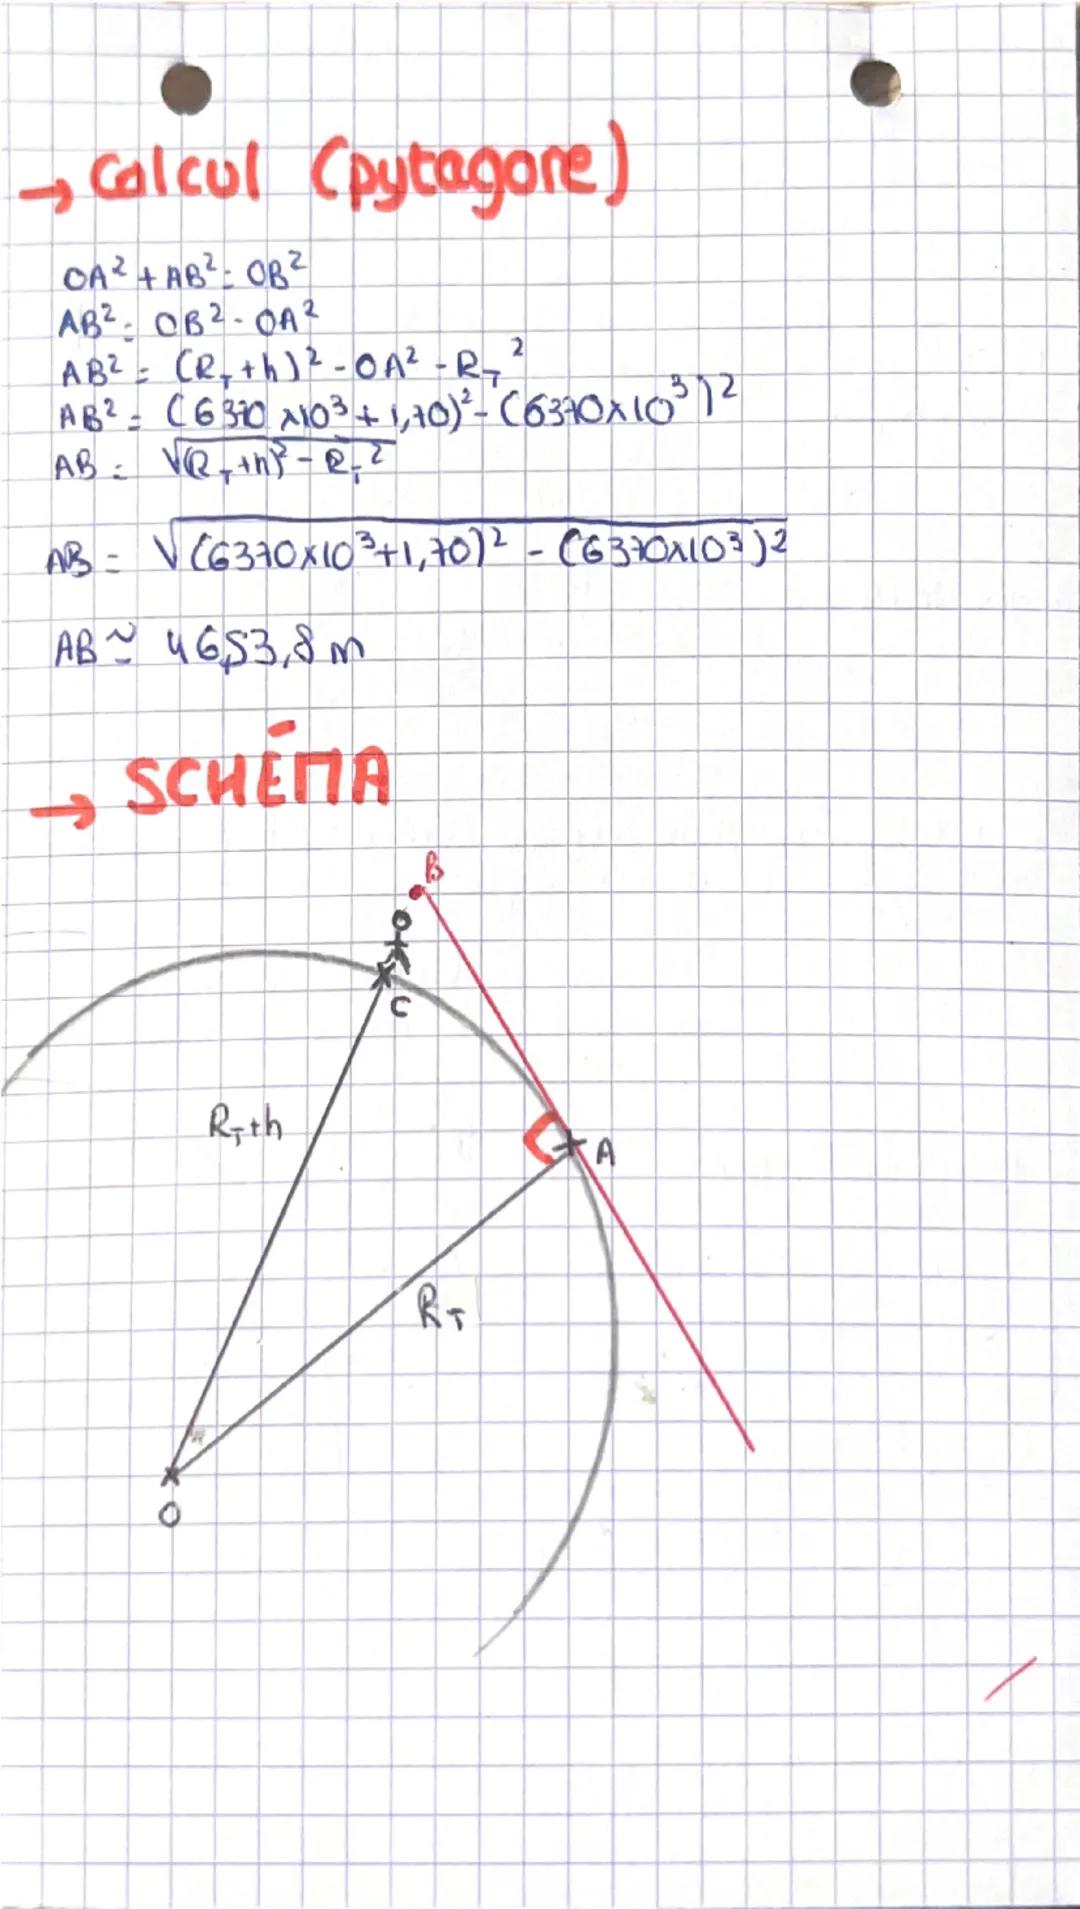 → Calcul (pytagore)
OA² + AB² = OB²
AB² = OB² - OA²
AB² = (R_T + h)² - OA² - R_T²
AB² = (6370 x10³ + 1,70)² - (6370x10³)²
AB = √(R_T + h)² - R_T²
AB = √(6370x10³+1,70)² - (6370x10³)²
AB ≃ 4653,8 m
→ SCHÉMA
B
C
R_T+h
A
R_T
O